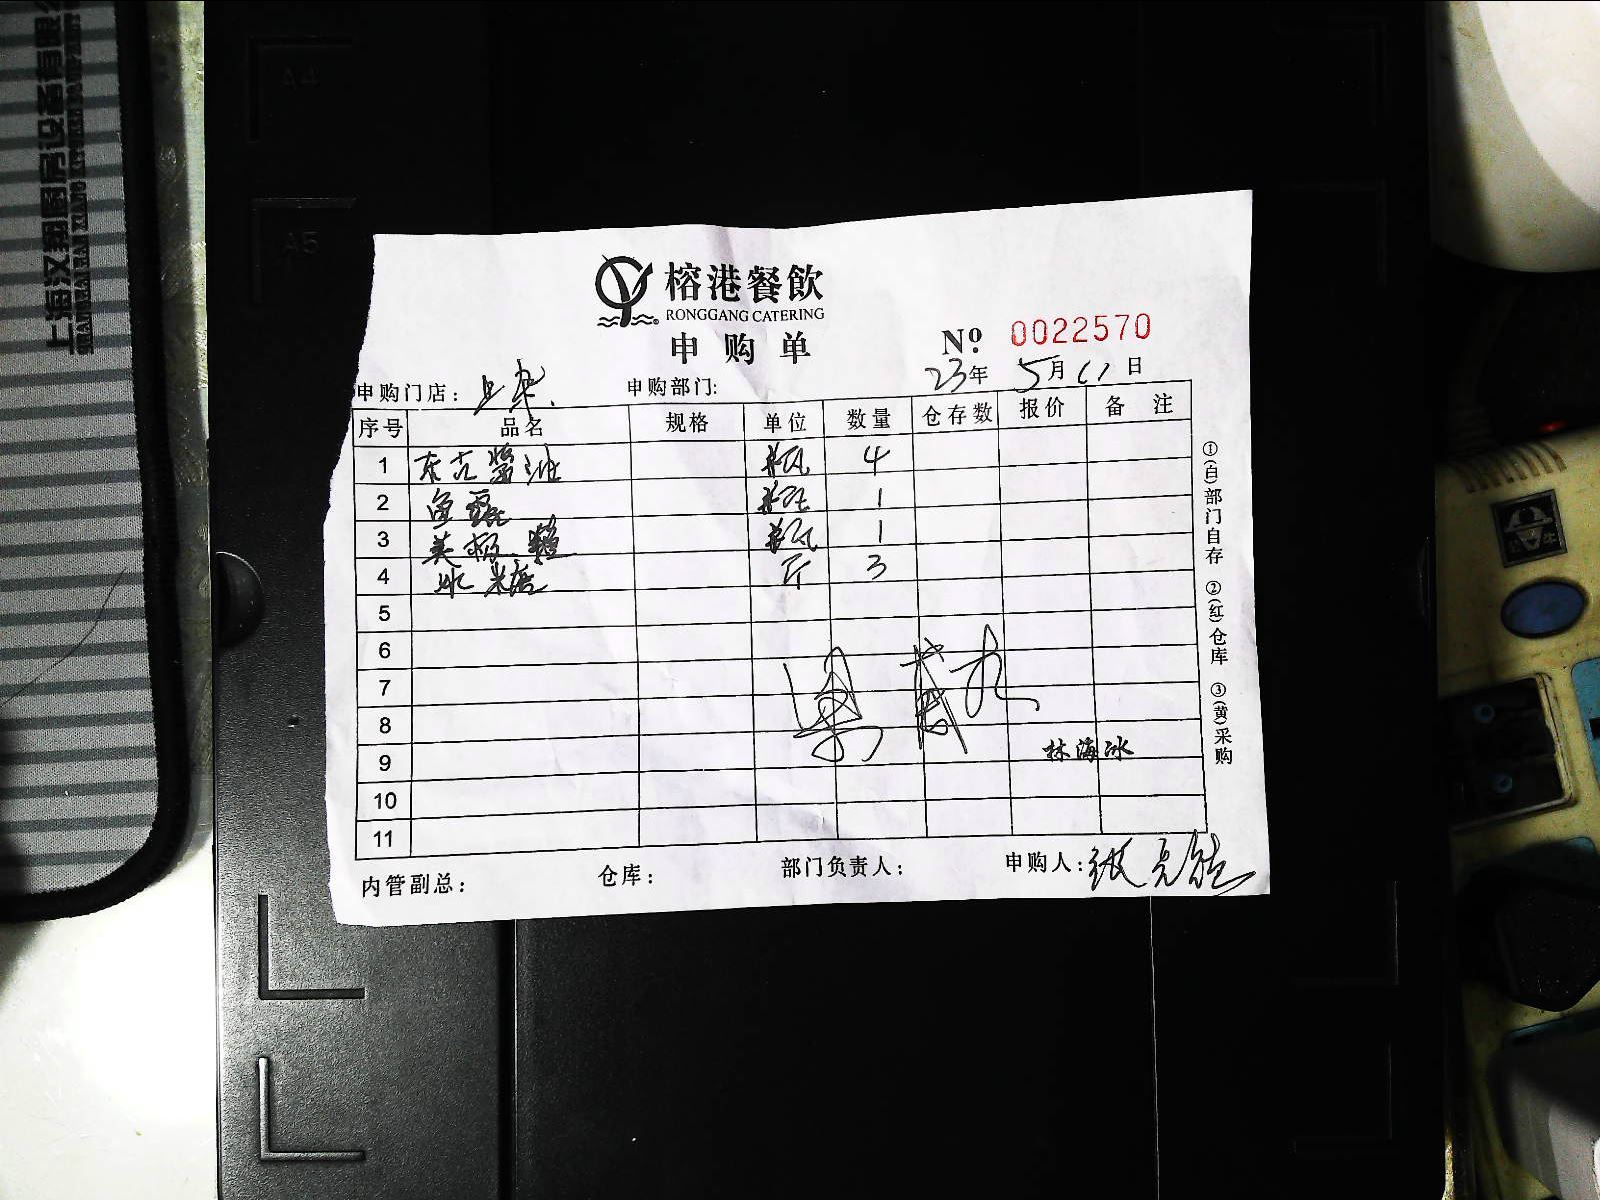 上海汉翔厨房设备有限公
A4
A5
榕港餐飲
RONGGANG CATERING
申购单
№ 0022570
申购门店: 申购部门: 23年 5月11日
序号 品名 规格 单位 数量 仓存数 报价 备注
1 东古酱油 瓶 4
2 鱼露 瓶 1
3 美极 瓶 1
4 冰糖 斤 3
5
6
7
8
9
10
11
林海冰
内管副总: 仓库: 部门负责人: 申购人:
①(白)部门自存 ②(红)仓库 ③(黄)采购